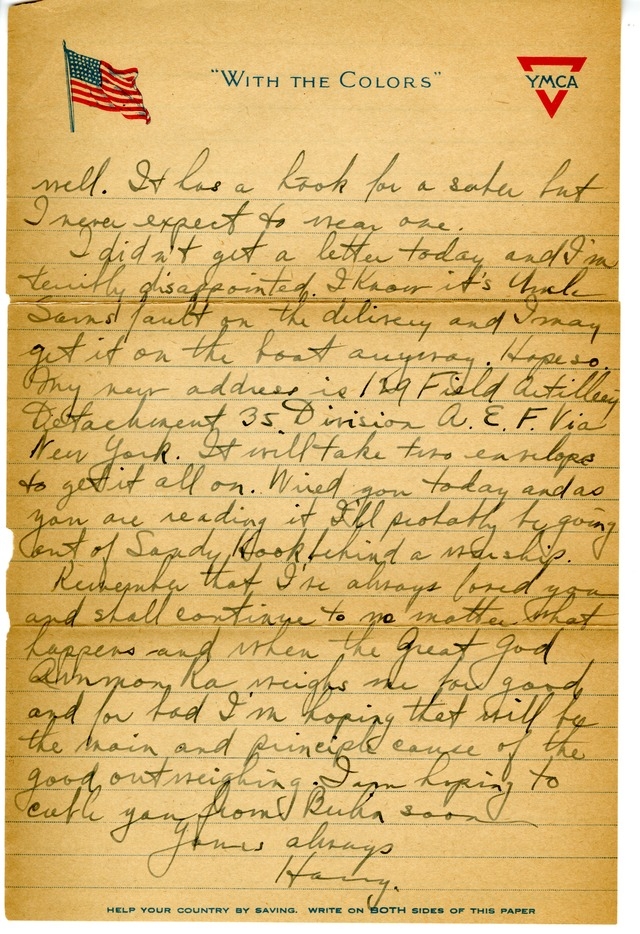 "WITH THE COLORS"
YMCA
well. It has a hook for a saber but
I never expect to wear one.
I didn't get a letter today and I'm
terribly disappointed. I know it's Uncle
Sams fault on the delivery and I may
get it on the boat anyway. Hope so.
My new address is 129 Field Artillery
Detachment 35 Division A. E. F. Via
New York. It will take two envelops
to get it all on. Wired you today and as
you are reading it I'll probably be going
out of Sandy Hook behind a warship.
Remember that I've always loved you
and shall continue to no matter what
happens and when the Great God
Ammon Ra weighs me for good
and for bad I'm hoping that will be
the main and principle cause of the
good outweighing. I am hoping to
cable you from Berlin soon
Yours always
Harry.
HELP YOUR COUNTRY BY SAVING. WRITE ON BOTH SIDES OF THIS PAPER